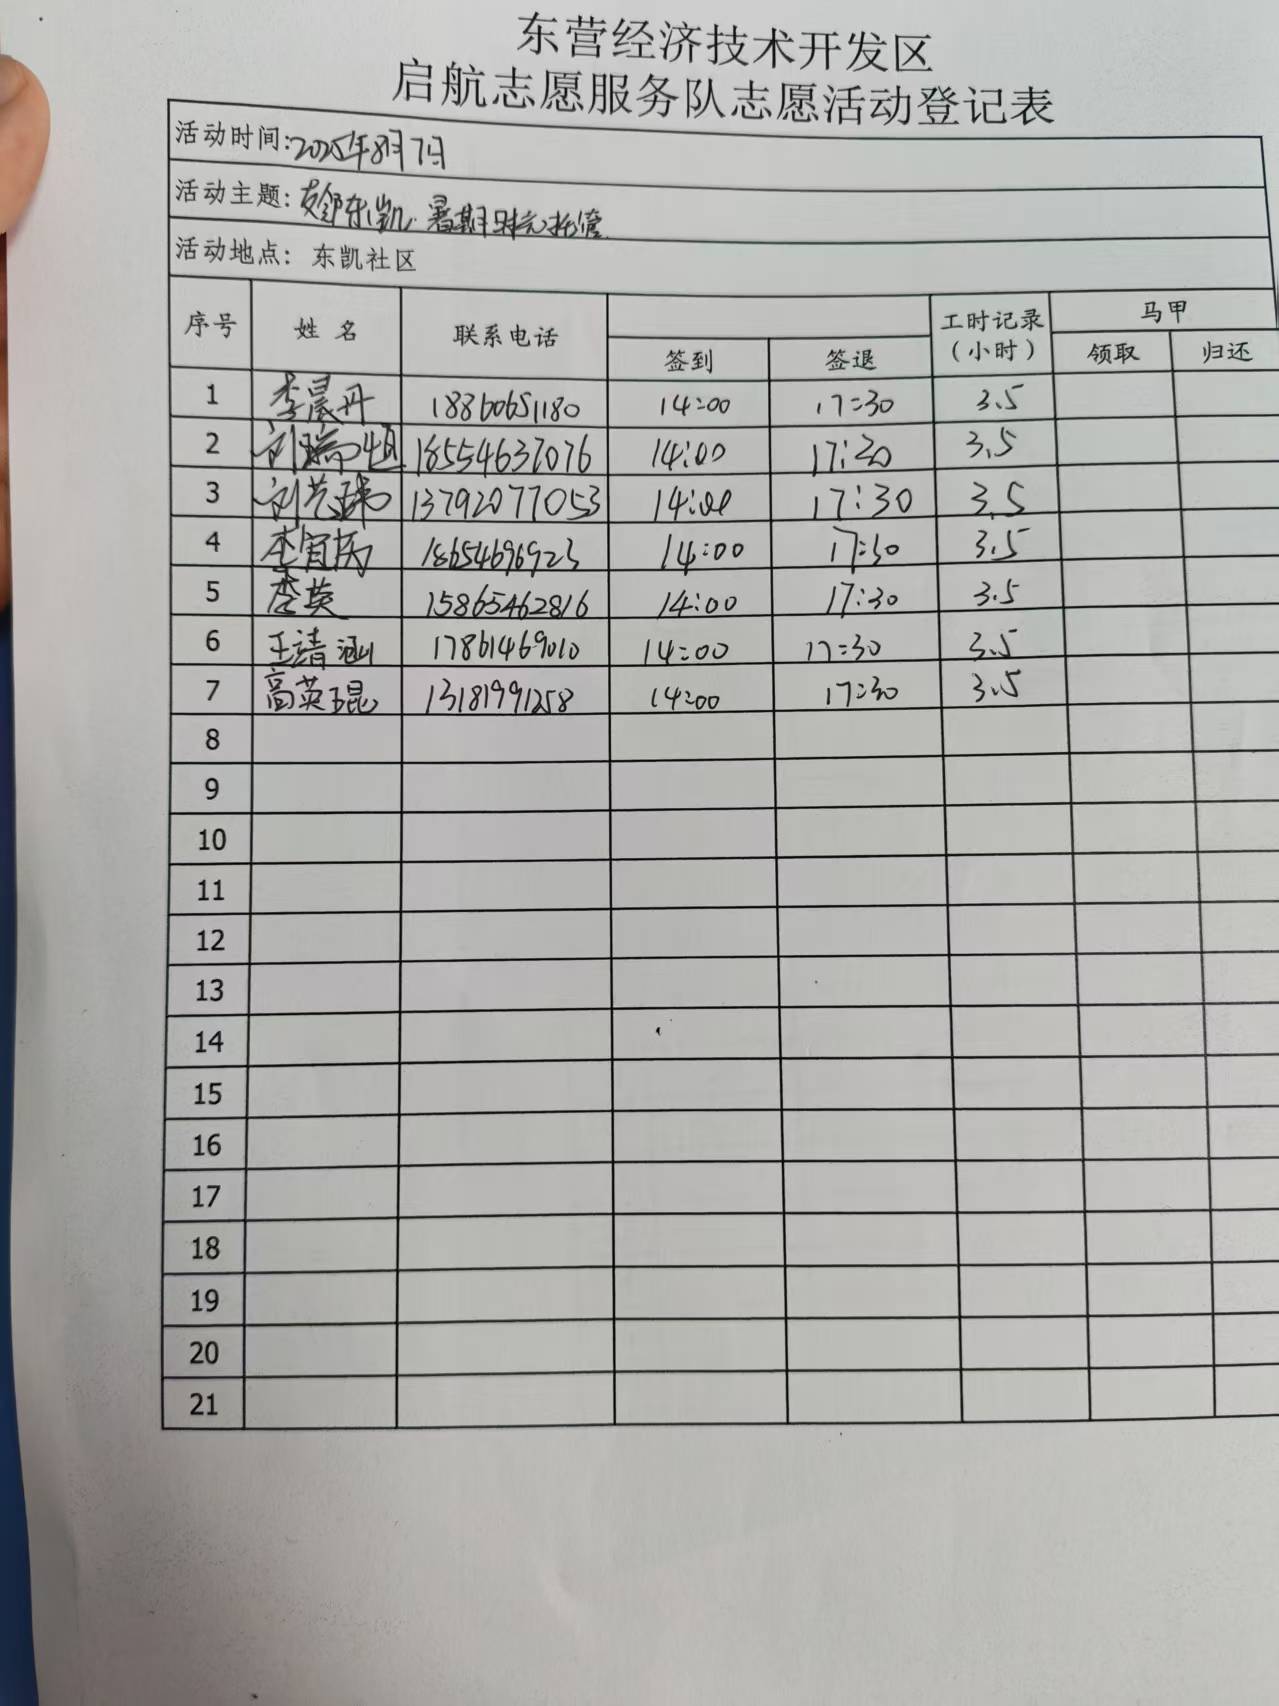 东营经济技术开发区
启航志愿服务队志愿活动登记表
活动时间:2025年8月7日
活动主题:友邻东凯·暑期时光托管
活动地点:东凯社区
序号 姓名 联系电话 签到 签退 工时记录(小时) 马甲 领取 归还
1 李晨丹 18860651180 14:00 17:30 3.5
2 刘瑞恒 18554637076 14:00 17:30 3.5
3 刘艺玮 13792077053 14:00 17:30 3.5
4 李宜 18654696923 14:00 17:30 3.5
5 李英 15865462816 14:00 17:30 3.5
6 王清涵 17861469010 14:00 17:30 3.5
7 高英琨 13181991258 14:00 17:30 3.5
8
9
10
11
12
13
14
15
16
17
18
19
20
21